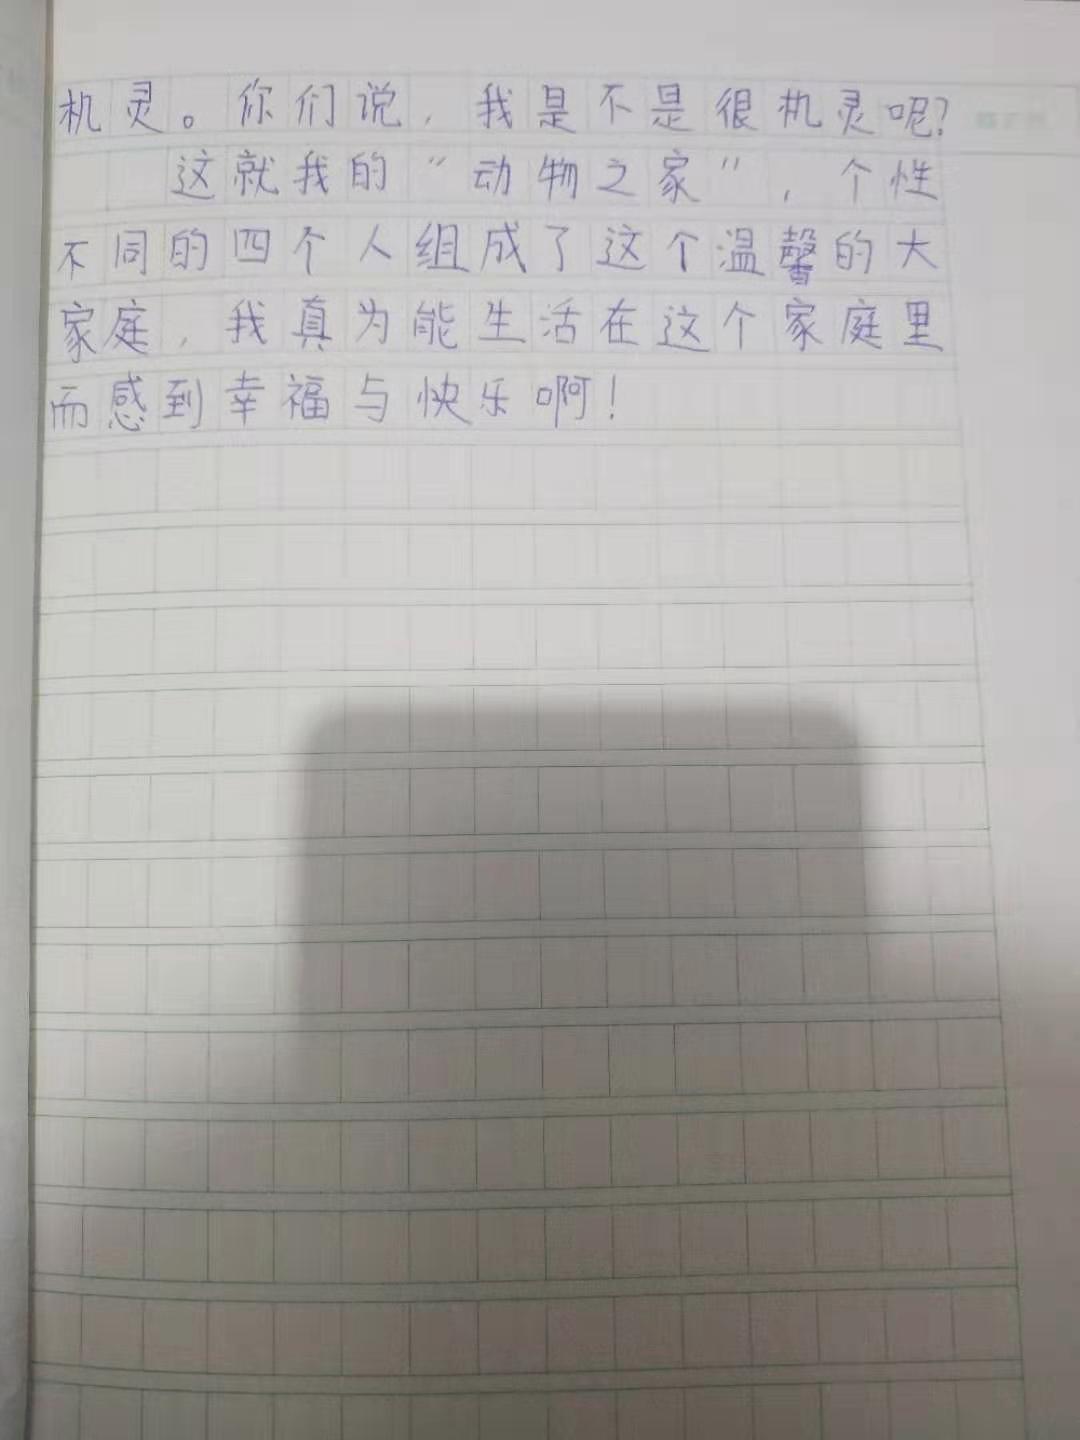 机灵。你们说，我是不是很机灵呢？
这就我的“动物之家”，个性
不同的四个人组成了这个温馨的大
家庭，我真为能生活在这个家庭里
而感到幸福与快乐啊！